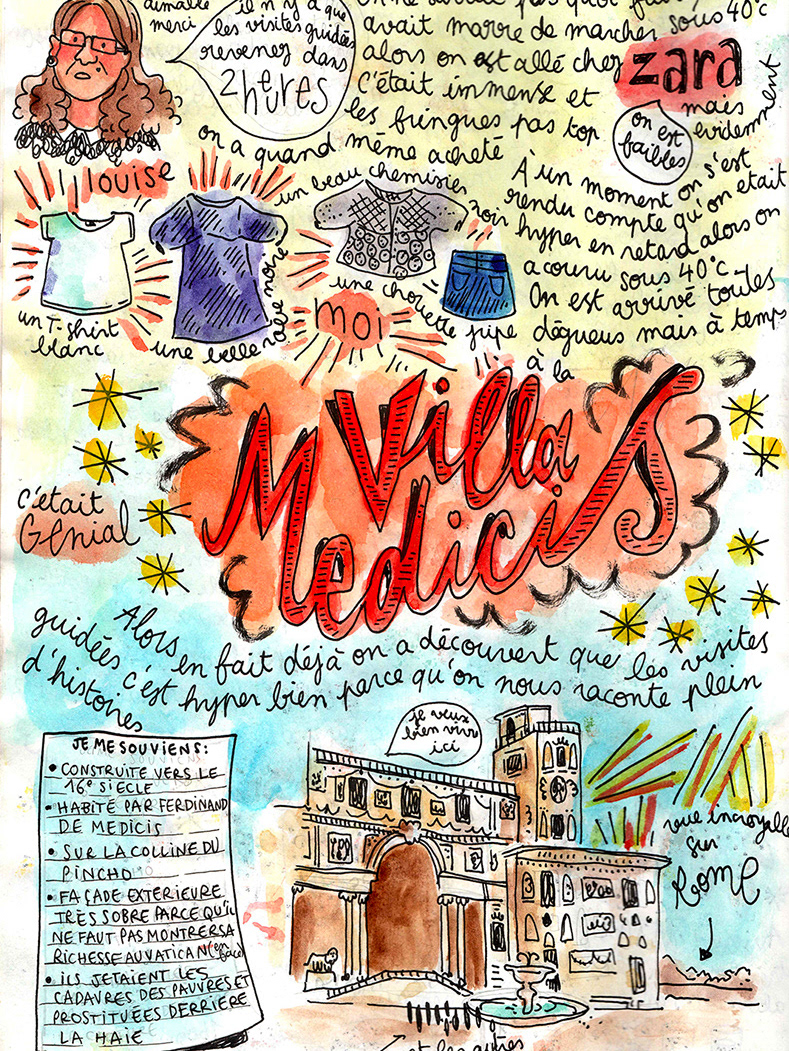 aimable
merci
il n'y a que
les visites guidées
revenez dans
2 heures
avait marre de marcher sous 40°c
alors on est allé chez zara
c'était immense et
les fringues pas top mais
on a quand même acheté evidemment
on est
faibles
louise
un T-shirt
blanc
une belle robe noire
un beau chemisier
noir
une chouette jupe
moi
À un moment on s'est
rendu compte qu'on etait
hyper en retard alors on
a couru sous 40°c.
On est arrivé toutes
dégueus mais à temps
à la
Villa
Medicis
c'était
Genial
Alors en fait déjà on a découvert que les visites
guidées c'est hyper bien parce qu'on nous raconte plein
d'histoires
JE ME SOUVIENS:
• CONSTRUITE VERS LE
16e SIECLE
• HABITÉ PAR FERDINAND
DE MEDICIS
• SUR LA COLLINE DU
PINCHO
• FAÇADE EXTERIEURE
TRÈS SOBRE PARCE QU'IL
NE FAUT PAS MONTRER SA
RICHESSE AU VATICAN (en face)
• ILS JETAIENT LES
CADAVRES DES PAUVRES ET
PROSTITUÉES DERRIERE
LA HAIE
je veux
bien vivre
ici
vue incroyable
sur
Rome
et les autres